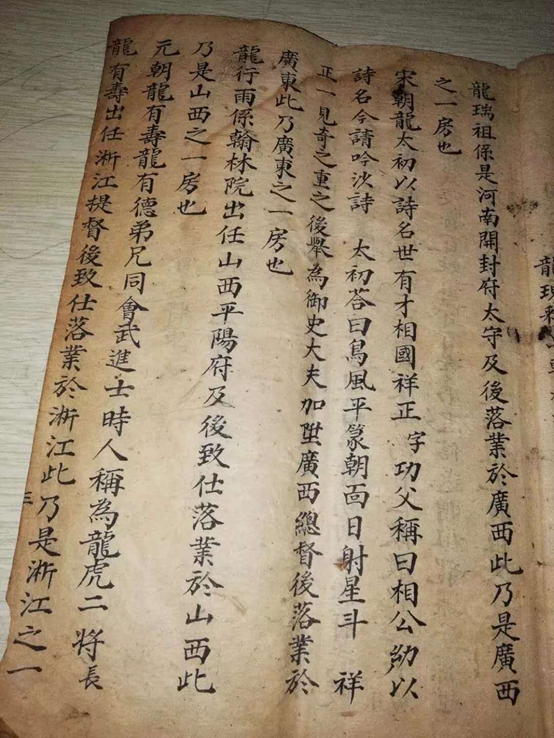 龍瑞祖係是河南開封府太守及後落業於廣西此乃是廣西
之一房也
宋朝龍太初以詩名世有才相國祥正字功父稱曰相公幼以
詩名今請吟沙詩 太初荅曰鳥風平篆朝面日射星斗 祥
正一見奇之重之後舉為御史大夫加陞廣西總督後落業於
廣東此乃廣東之一房也
龍行雨係翰林院出任山西平陽府及後致仕落業於山西此
乃是山西之一房也
元朝龍有壽龍有德弟兄同會武進士時人稱為龍虎二將長
龍有壽出任浙江提督後致仕落業於浙江此乃是浙江之一